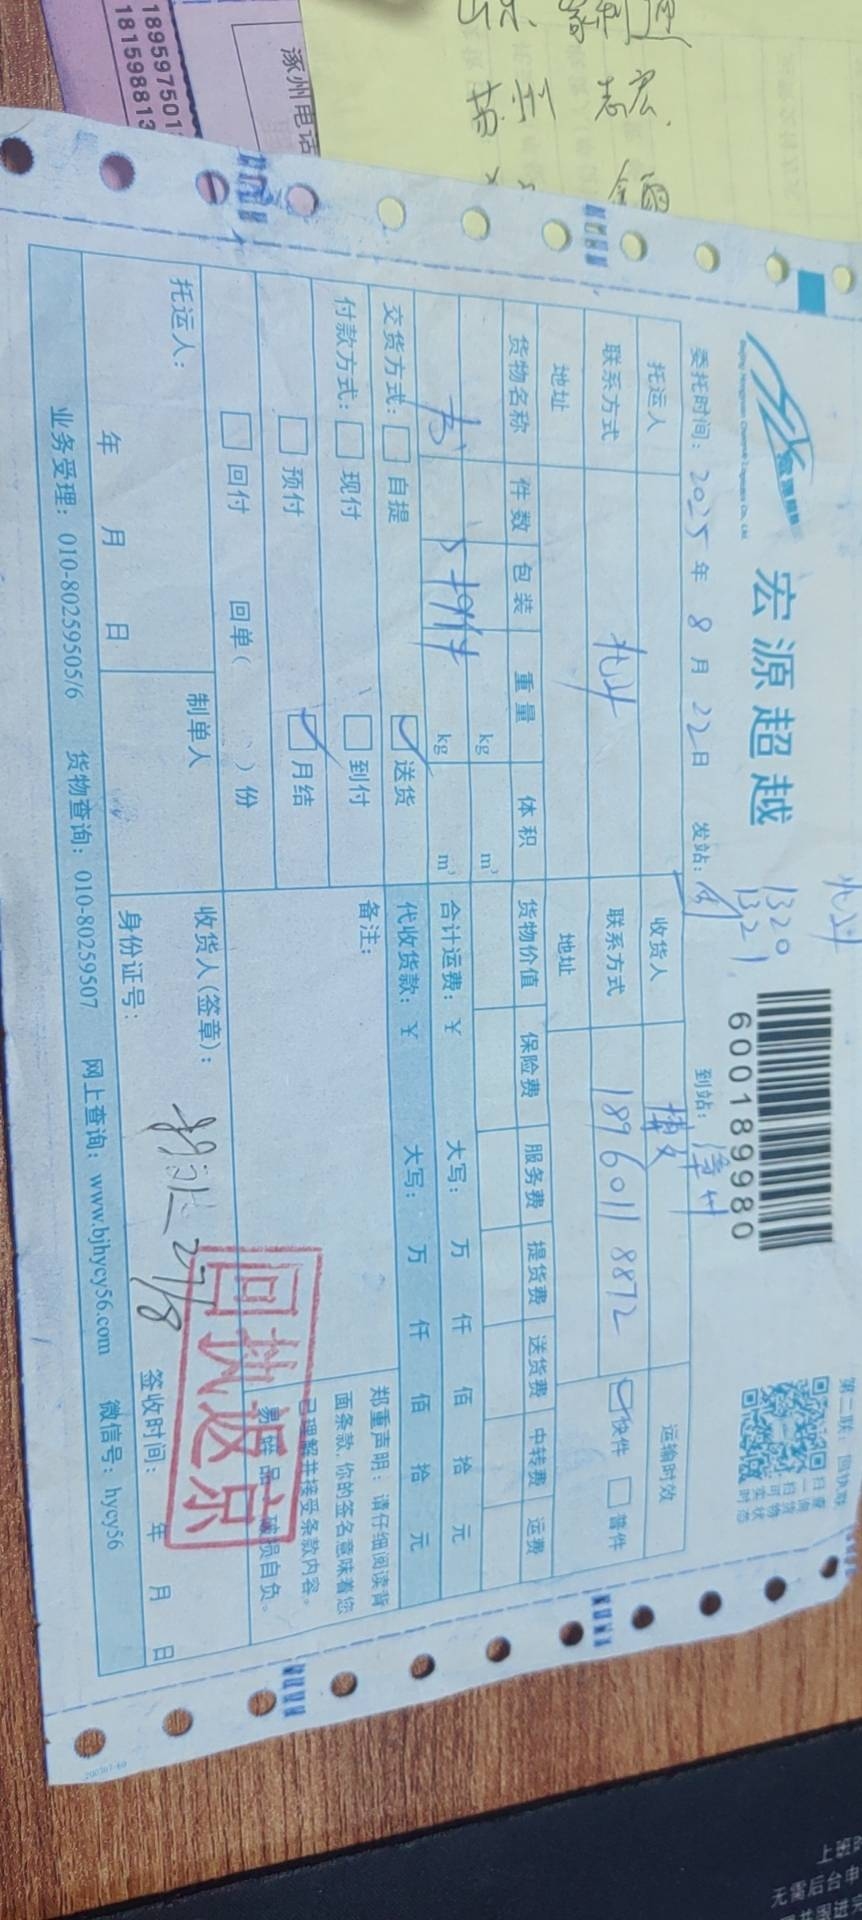 18959750
181598813
涿州电话
苏州 志宏
宏源超越
兆斗
1320
1321
600189980
第二联：回执联
扫一扫可实时
查询货物状态
委托时间：2025年8月22日 发站： 到站：漳州
托运人 收货人 博文 运输时效
联系方式 兆斗 联系方式 18960118872 快件 普件
地址 地址
货物名称 件数 包装 重量 体积 货物价值 保险费 服务费 提货费 送货费 中转费 运费
kg m³
书 5+9件 kg m³ 合计运费：￥ 大写： 万 仟 佰 拾 元
交货方式： 自提 送货 代收货款：￥ 大写： 万 仟 佰 拾 元
付款方式： 现付 到付 备注：
预付 月结
回付 回单（ ）份
郑重声明：请仔细阅读背
面条款，你的签名意味着您
已理解并接受条款内容。
易碎品破损自负。
回执返京
托运人： 制单人 收货人（签章）： 27/8
年 月 日 身份证号： 签收时间： 年 月 日
业务受理：010-80259505/6 货物查询：010-80259507 网上查询：www.bjhycy56.com 微信号：hycy56
上班
无需后台申